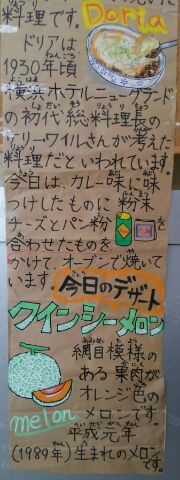 料理です。
Doria
ドリアは、
1930年頃
横浜ホテルニューグランド
の初代総料理長の
サリーワイルさんが考えた
料理だといわれています。
今日は、カレー味に味
つけしたものに粉末
チーズとパン粉
を合わせたものを
かけて、オーブンで焼いて
います。
今日のデザート
クインシーメロン
網目模様の
ある果肉が
オレンジ色の
メロンです。
melon
平成元年
(1989年)生まれのメロン
です。